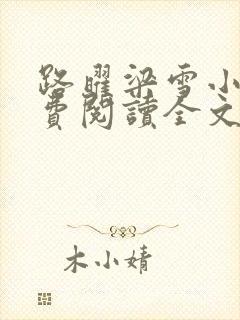 路曜梁雪小
費閱讀全文
木小婧